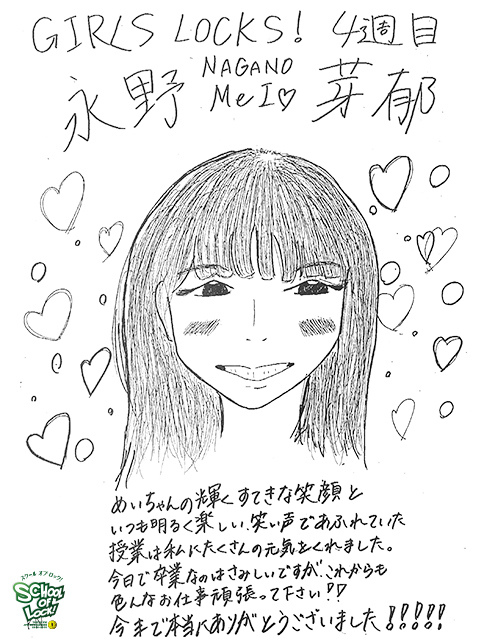 GIRLS LOCKS! 4週目
永野 芽郁
NAGANO
MeI♡
めいちゃんの輝くすてきな笑顔と
いつも明るく楽しい、笑い声であふれていた
授業は私にたくさんの元気をくれました。
今日で卒業なのはさみしいですが、これからも
色んなお仕事頑張って下さい!!
今まで本当にありがとうございました!!!!!
スクール オブ ロック!
SCHOOL
OF
LOCK!